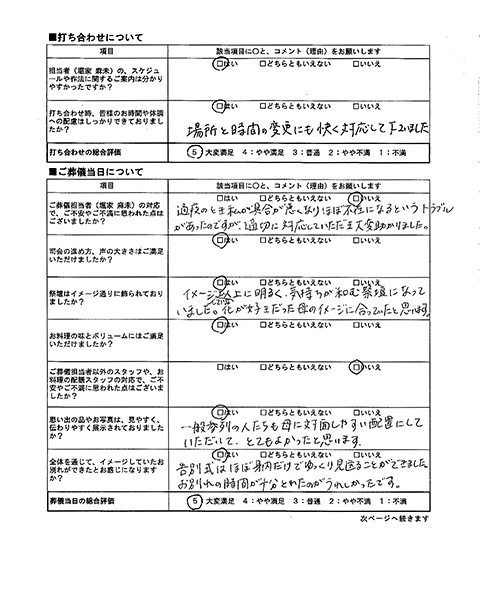 ■打ち合わせについて
項目 該当項目に○と、コメント（理由）をお願いします
担当者（堀家 麻未）の、スケジュールや作法に関するご案内は分かりやすかったですか？ □はい □どちらともいえない □いいえ
打ち合わせ時、皆様のお時間や体調への配慮はしっかりできておりましたか？ □はい □どちらともいえない □いいえ
場所と時間の変更にも快く対応して下さいました
打ち合わせの総合評価 5：大変満足 4：やや満足 3：普通 2：やや不満 1：不満
■ご葬儀当日について
項目 該当項目に○と、コメント（理由）をお願いします
ご葬儀担当者（堀家 麻未）の対応で、ご不安やご不満に思われた点はございましたか？ □はい □どちらともいえない □いいえ
通夜のとき私が具合が悪くなりほぼ不在になるというトラブル
があったのですが、適切に対応していただき大変助かりました。
司会の進め方、声の大きさはご満足いただけましたか？ □はい □どちらともいえない □いいえ
祭壇はイメージ通りに飾られておりましたか？ □はい □どちらともいえない □いいえ
イメージ以上に明るく、気持ちが和む祭壇になって
いました。花が好きだった母のイメージに合っていたと思います。
お料理の味とボリュームにはご満足いただけましたか？ □はい □どちらともいえない □いいえ
ご葬儀担当者以外のスタッフや、お料理の配膳スタッフの対応で、ご不安やご不満に思われた点はございましたか？ □はい □どちらともいえない □いいえ
思い出の品やお写真は、見やすく、伝わりやすく展示されておりましたか？ □はい □どちらともいえない □いいえ
一般参列の人たちも母に対面しやすい配置にして
いただいて、とてもよかったと思います。
全体を通じて、イメージしていたお送りができたとお感じになりますか？ □はい □どちらともいえない □いいえ
告別式はほぼ身内だけでゆっくり見送ることができました
お別れの時間が十分とれたのがうれしかったです。
葬儀当日の総合評価 5：大変満足 4：やや満足 3：普通 2：やや不満 1：不満
次ページへ続きます